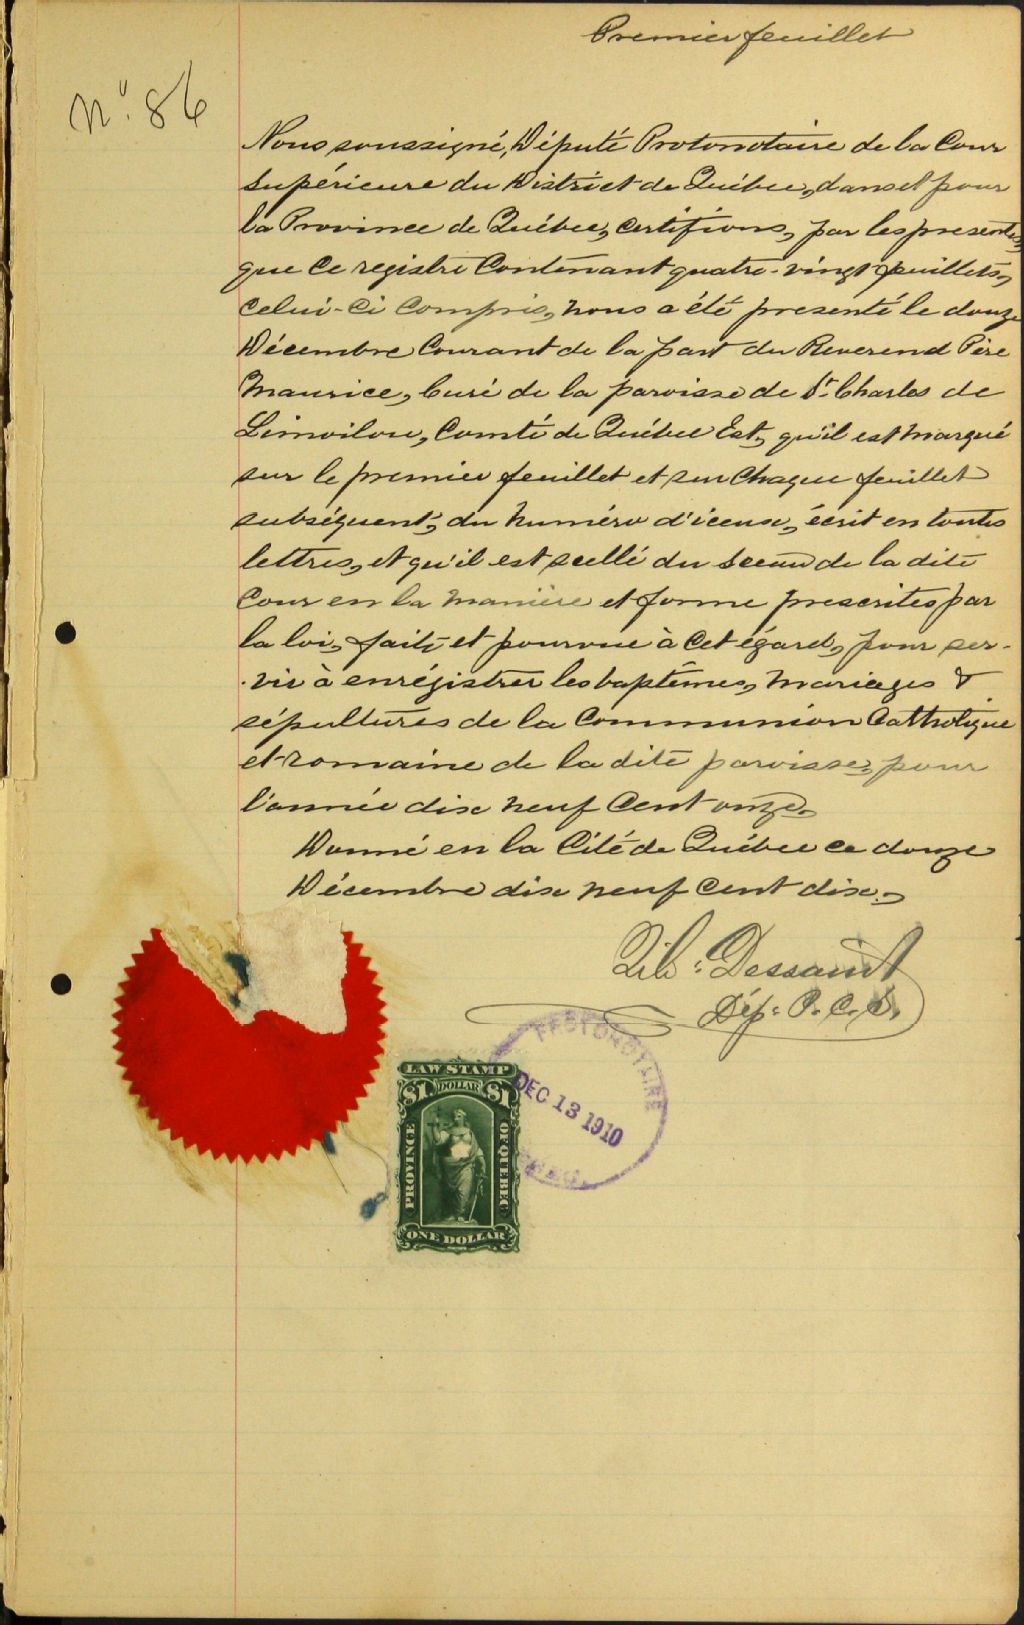 Premier feuillet
No. 86
Nous soussigné, Député Protonotaire de la Cour
Supérieure du District de Québec, dans et pour
la Province de Québec, certifions, par les presentes,
que ce registre contenant quatre-vingt feuillets,
celui-ci compris, nous a été presenté le douze
Décembre Courant de la part du Reverend Père
Maurice, Curé de la paroisse de St. Charles de
Limoilou, Comté de Québec Est, qu'il est marqué
sur le premier feuillet et sur chaque feuillet
subséquent, du numéro d'iceux, écrit en toutes
lettres, et qu'il est scellé du sceau de la dite
Cour en la manière et forme prescrites par
la loi, faite et pourvue à cet égard, pour ser-
-vir à enrégistrer les baptêmes, mariages &
sépultures de la Communion Catholique
et romaine de la dite paroisse, pour
l'année dix neuf Cent onze,
Donné en la Cité de Québec ce douze
Décembre dix neuf Cent dix.,
Dessaint
Dép. P. C. S.
PROTONOTAIRE
DEC 13 1910
QUEBEC
LAW STAMP
$1 DOLLAR $1
PROVINCE OF QUEBEC
ONE DOLLAR